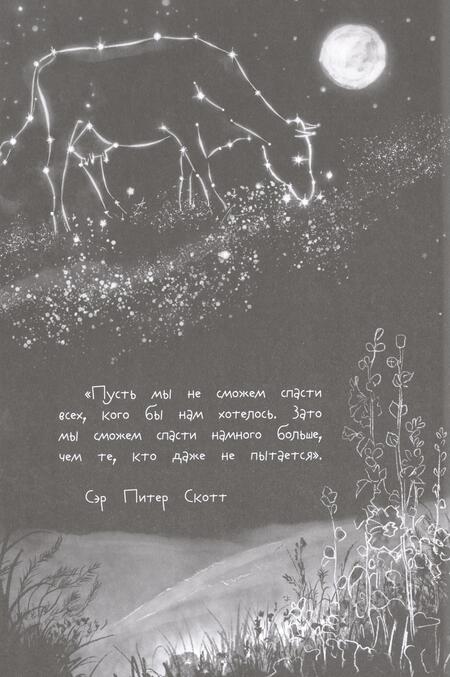 «Пусть мы не сможем спасти
всех, кого бы нам хотелось. Зато
мы сможем спасти намного больше,
чем те, кто даже не пытается».
Сэр Питер Скотт